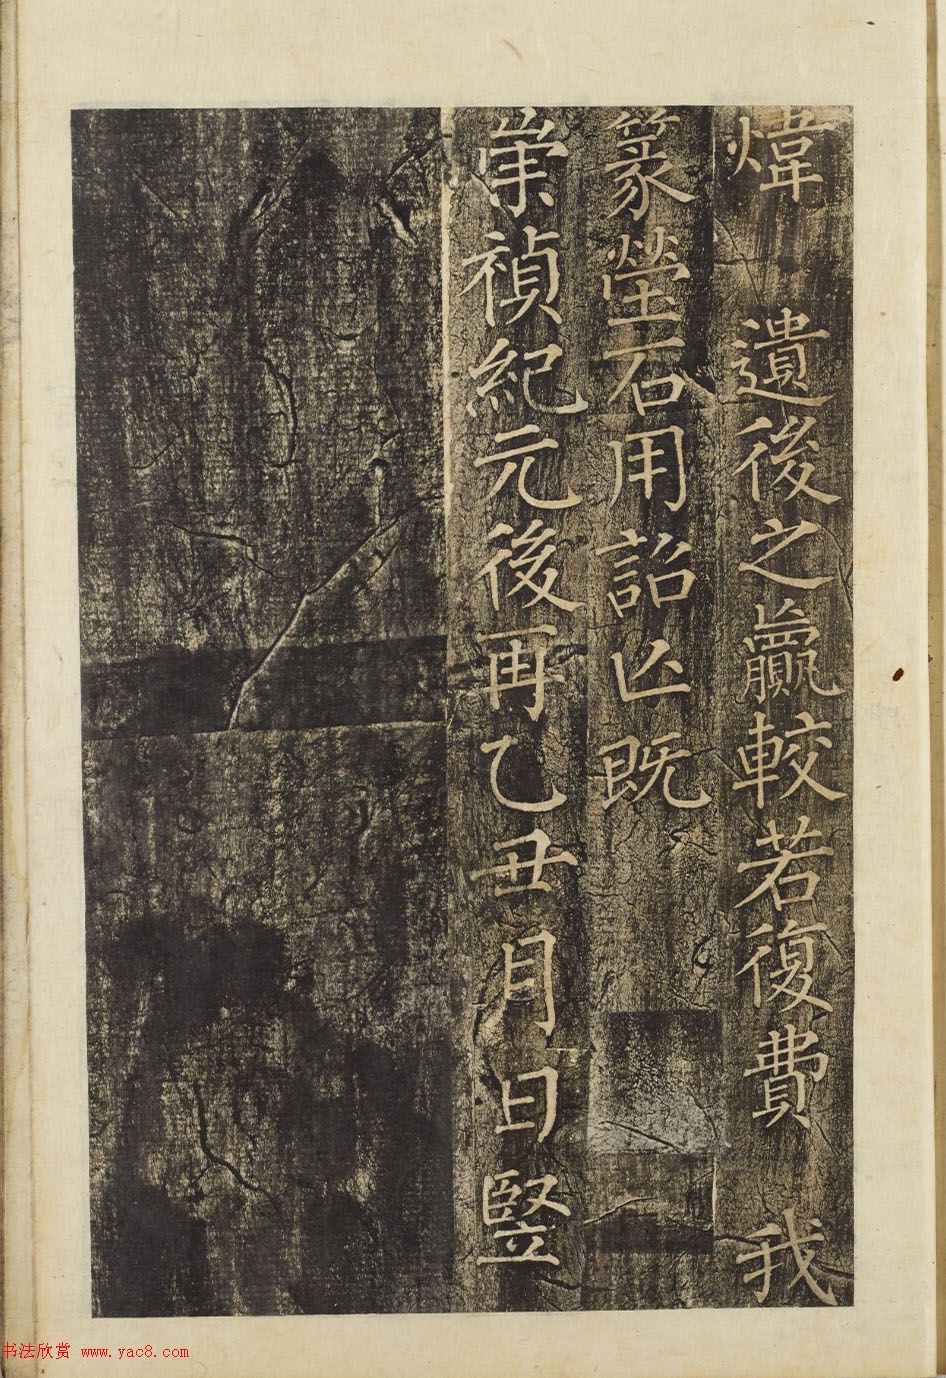 煒 遺後之贏較若復費 我
篆塋石用詔匹既
崇禎紀元後再乙丑月日竪
书法欣赏 www.yac8.com